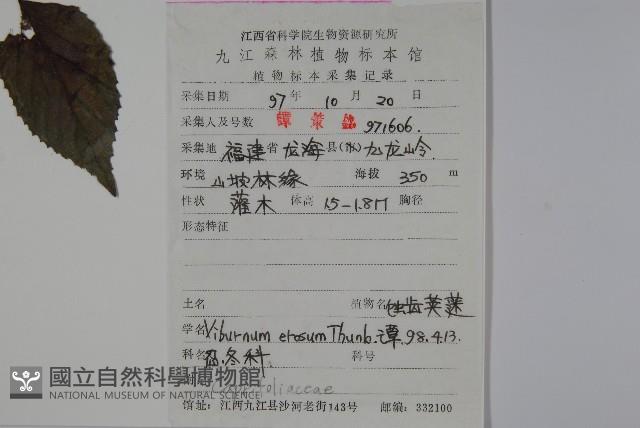 江西省科学院生物资源研究所
九江森林植物标本馆
植物标本采集记录
采集日期 97 年 10 月 20 日
采集人及号数 譚策銘 971606.
采集地 福建省龙海县(市)九龙岭.
环境 山坡林缘 海拔 350 m
性状 灌木 体高 1.5-1.8m 胸径
形态特征
土名 植物名 蚀齿荚蒾
学名 Viburnum erosum Thunb. 谭 98.4.13.
科名 忍冬科. 科号
Caprifoliaceae
馆址：江西九江县沙河老街143号 邮编：332100
國立自然科學博物館
NATIONAL MUSEUM OF NATURAL SCIENCE